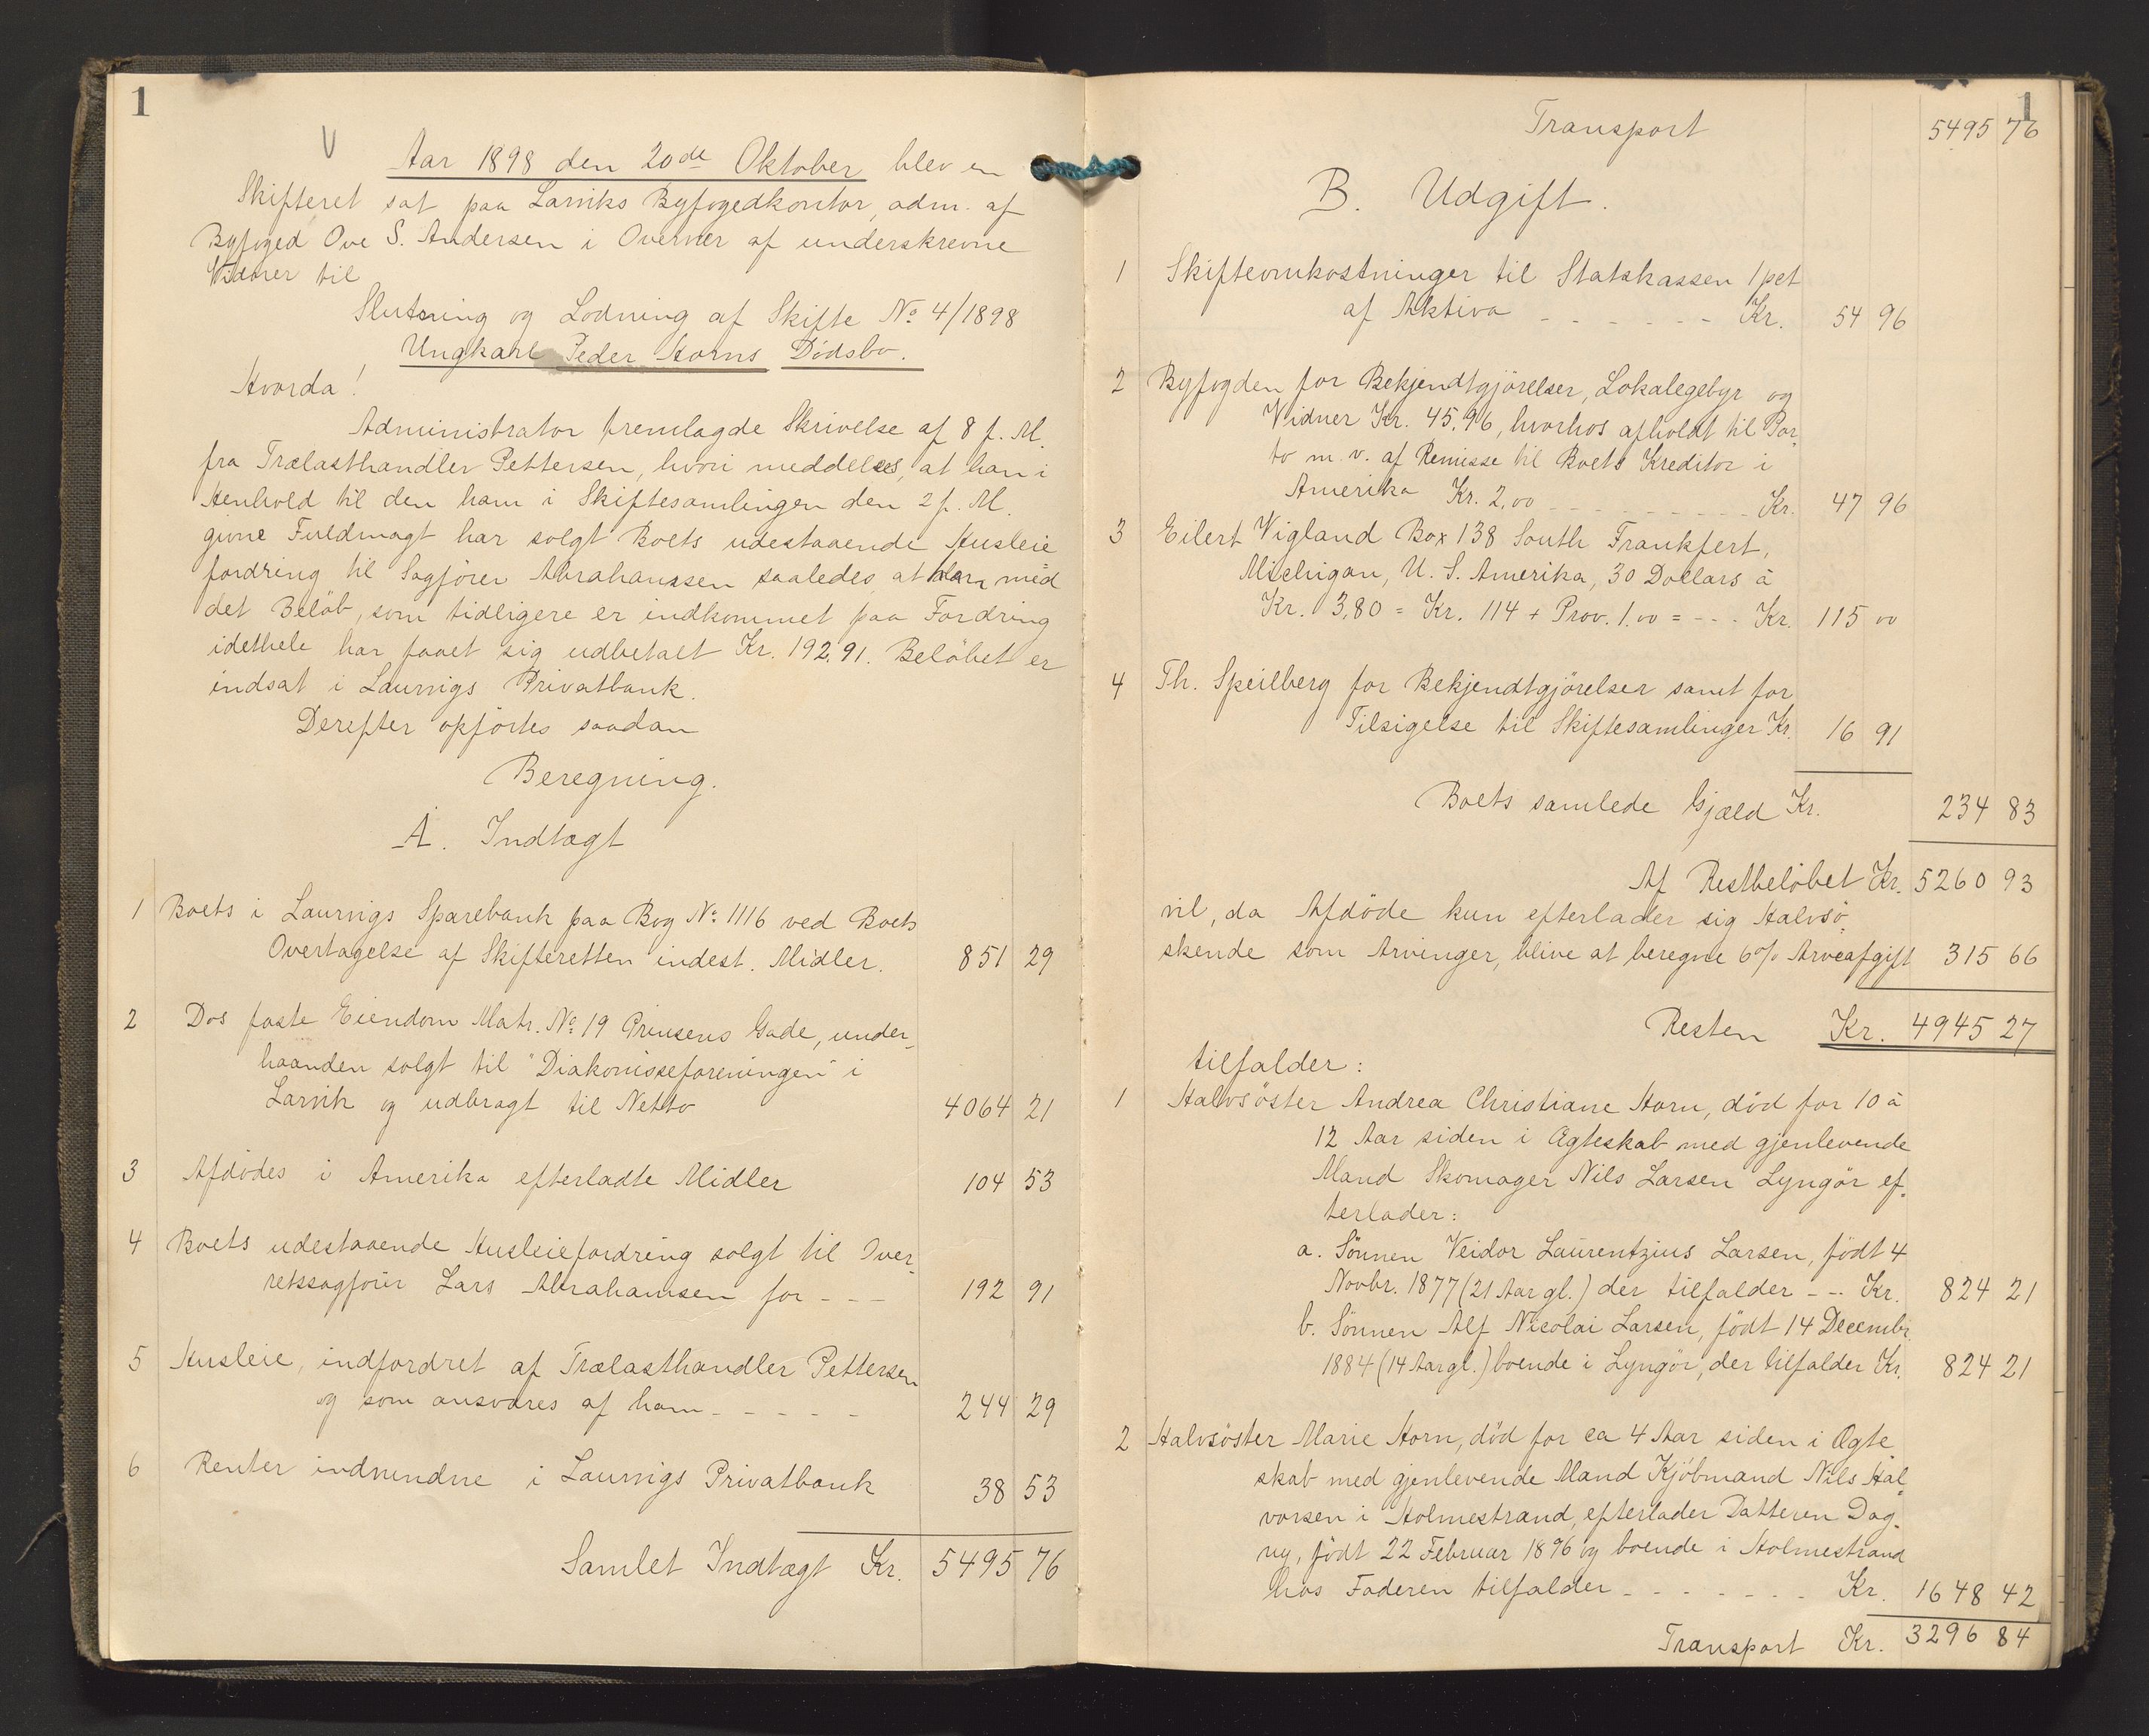 1
V
Aar 1898 den 20de Oktober blev en
Skifteret sat paa Larviks Byfogedkontor, adm. af
Byfoged Ove S. Andersen i Overvær af underskrevne
Vidner til
Slutning og Lodning af Skifte No 4/1898
Ungkarl Peder Horns Dödsbo.
Hvorda!
Administrator fremlagde Skrivelse af 8 f. M.
fra Trælasthandler Pettersen, hvori meddeles, at han i
Henhold til den ham i Skiftesamlingen den 2 f. M.
givne Fuldmagt har solgt Boets udestaaende Husleie
fordring til Sagförer Abrahamsen saaledes, at han med
det Belöb, som tidligere er indkommet paa Fordring
idethele har faaet sig udbetalt Kr. 192,91. Belöbet er
indsat i Laurvigs Privatbank.
Derefter opförtes saadan
Beregning.
A. Indtægt
1 Boets i Laurvigs Sparebank paa Bog No 1116 ved Boets
Overtagelse af Skifteretten indest. Midler. 851 29
2 Dos faste Eiendom Matr. No 19 Prinsens Gade, under-
haanden solgt til "Diakonisseforeningen" i
Larvik og udbragt til Netto 4064 21
3 Afdödes i Amerika efterladte Midler 104 53
4 Boets udestaaende Husleiefordring solgt til Over-
retssagförer Lars Abrahamsen for - - - 192 91
5 Husleie, indfordret af Trælasthandler Pettersen
og som ansvares af ham - - - - - 244 29
6 Renter indvundne i Laurvigs Privatbank 38 53
Samlet Indtægt Kr. 5495 76
1
Transport 5495 76
B. Udgift.
1 Skifteomkostninger til Statskassen 1 pct
af Aktiva - - - - - - Kr. 54 96
2 Byfogden for Bekjendtgjörelser, Lokalegebyr og
Vidner Kr. 45,96, hvorhos afholdt til Por-
to m. v. af Remisse til Boets Kreditor i
Amerika Kr. 2,00 - - - - - - - - - Kr. 47 96
3 Eilert Vigland Box 138 South Frankfert,
Michigan, U. S. Amerika, 30 Dollars à
Kr. 3,80 = Kr. 114 + Prov. 1.00 = - - - Kr. 115 00
4 Th. Speilberg for Bekjendtgjörelser samt for
Tilsigelse til Skiftesamlinger Kr. 16 91
Boets samlede Gjæld Kr. 234 83
Af Restbelöbet Kr. 5260 93
vil, da Afdöde kun efterlader sig Halvsö-
skende som Arvinger, blive at beregne 6% Arveafgift 315 66
Resten Kr. 4945 27
tilfalder:
1 Halvsöster Andrea Christiane Horn, död for 10 à
12 Aar siden i Ægteskab med gjenlevende
Mand Skomager Nils Larsen Lyngör ef-
terlader:
a. Sönnen Veidor Laurentzius Larsen, födt 4
Novbr. 1877 (21 Aar gl.) der tilfalder - - - Kr. 824 21
b. Sönnen Alf Nicolai Larsen, födt 14 Decembr.
1884 (14 Aar gl.) boende i Lyngör, der tilfalder Kr. 824 21
2 Halvsöster Marie Horn, död for ca 4 Aar siden i Ægte
skab med gjenlevende Mand Kjöbmand Nils Hal-
vorsen i Holmestrand, efterlader Datteren Dag-
ny, födt 22 Februar 1896 og boende i Holmestrand
hos Faderen tilfalder - - - - - - - Kr. 1648 42
Transport Kr. 3296 84